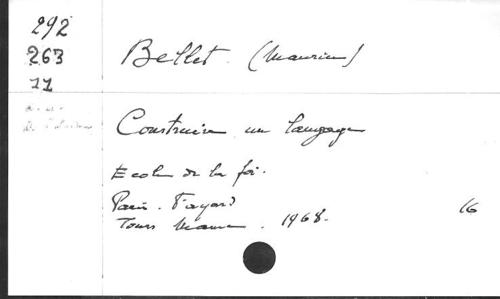 292
263
11
Bellet. (Maurice)
Construire un langage
Ecole de la foi.
Paris. Fayard
Tours Mame. 1968.
16